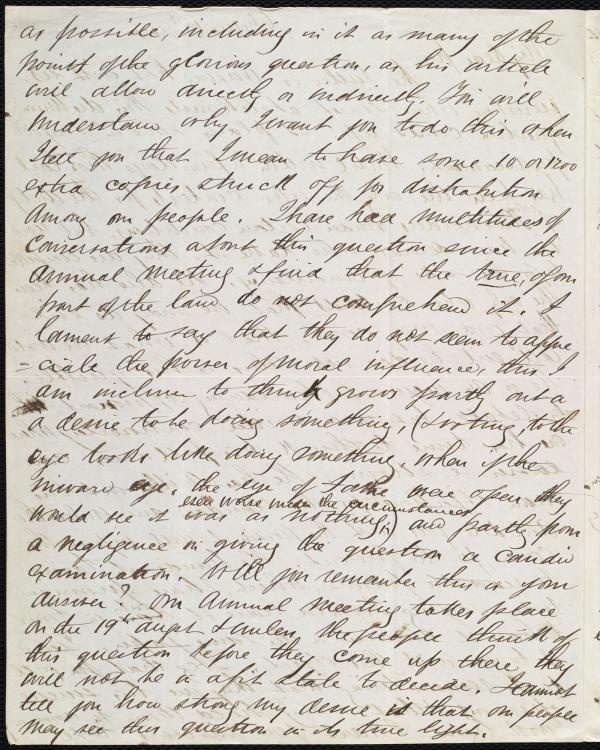 as possible, including in it as many of the
points of the glorious question, as his article
will allow directly or indirectly. You will
understand why I want you to do this when
I tell you that I mean to have some 10 or 1200
extra copies struck off for distribution
among our people. I have had multitudes of
conversations about this question since the
Annual meeting & find that the true, of our
part of the land do not comprehend it. I
lament to say that they do not seem to appre
=ciate the power of moral influence, this I
am inclined to think grows partly out a
a desire to be doing something, (& voting, to the
eye looks like doing something, when if the
inward eye, the eye of were open they
would see it was as nothing,) and partly from
even worse under the circumstances
a negligence in giving the question a candid
examination. Will you remember this in your
answer? Our Annual meeting takes place
on the 19th augst & unless the people think of
this question before they come up there they
will not be in a fit state to decide. I cannot
tell you how strong my desire is that our people
may see this question in its true light.